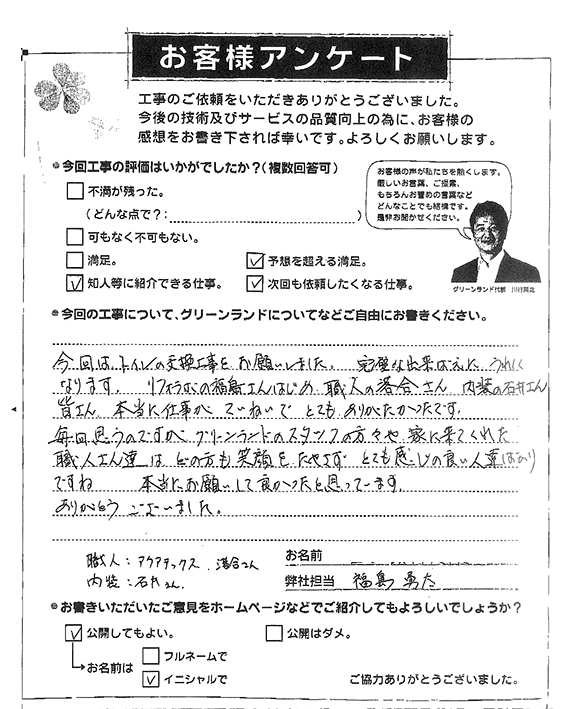 お客様アンケート
工事のご依頼をいただきありがとうございました。
今後の技術及びサービスの品質向上の為に、お客様の
感想をお書き下されば幸いです。よろしくお願いします。
今回工事の評価はいかがでしたか？(複数回答可)
不満が残った。
(どんな点で？: )
可もなく不可もない。
満足。
予想を超える満足。
知人等に紹介できる仕事。
次回も依頼したくなる仕事。
お客様の声が私たちを動くします。
厳しいお言葉、ご提案、
もちろんお誉めの言葉など
どんなことでも結構です。
是非お聞かせください。
グリーンランド代表
今回の工事について、グリーンランドについてなどご自由にお書きください。
今回はトイレの交換工事をお願いしました。 完璧な出来ばえに うれしく
なります。 リフォームの福島さんはじめ 職人の落合さん 内装の石井さん
皆さん 本当に仕事が ていねいで とても ありがたかったです。
毎回思うのですが グリーンランドのスタッフの方々や 家に来てくれた
職人さん達は どの方も笑顔をたやさず とても感じの良い人達ばかり
ですね 本当にお願いして良かったと思っています。
ありがとう ございました。
職人：アクアテックス 落合さん
内装：石井さん
お名前
弊社担当 福島 勇太
お書きいただいたご意見をホームページなどでご紹介してもよろしいでしょうか？
公開してもよい。
公開はダメ。
お名前は
フルネームで
イニシャルで
ご協力ありがとうございました。